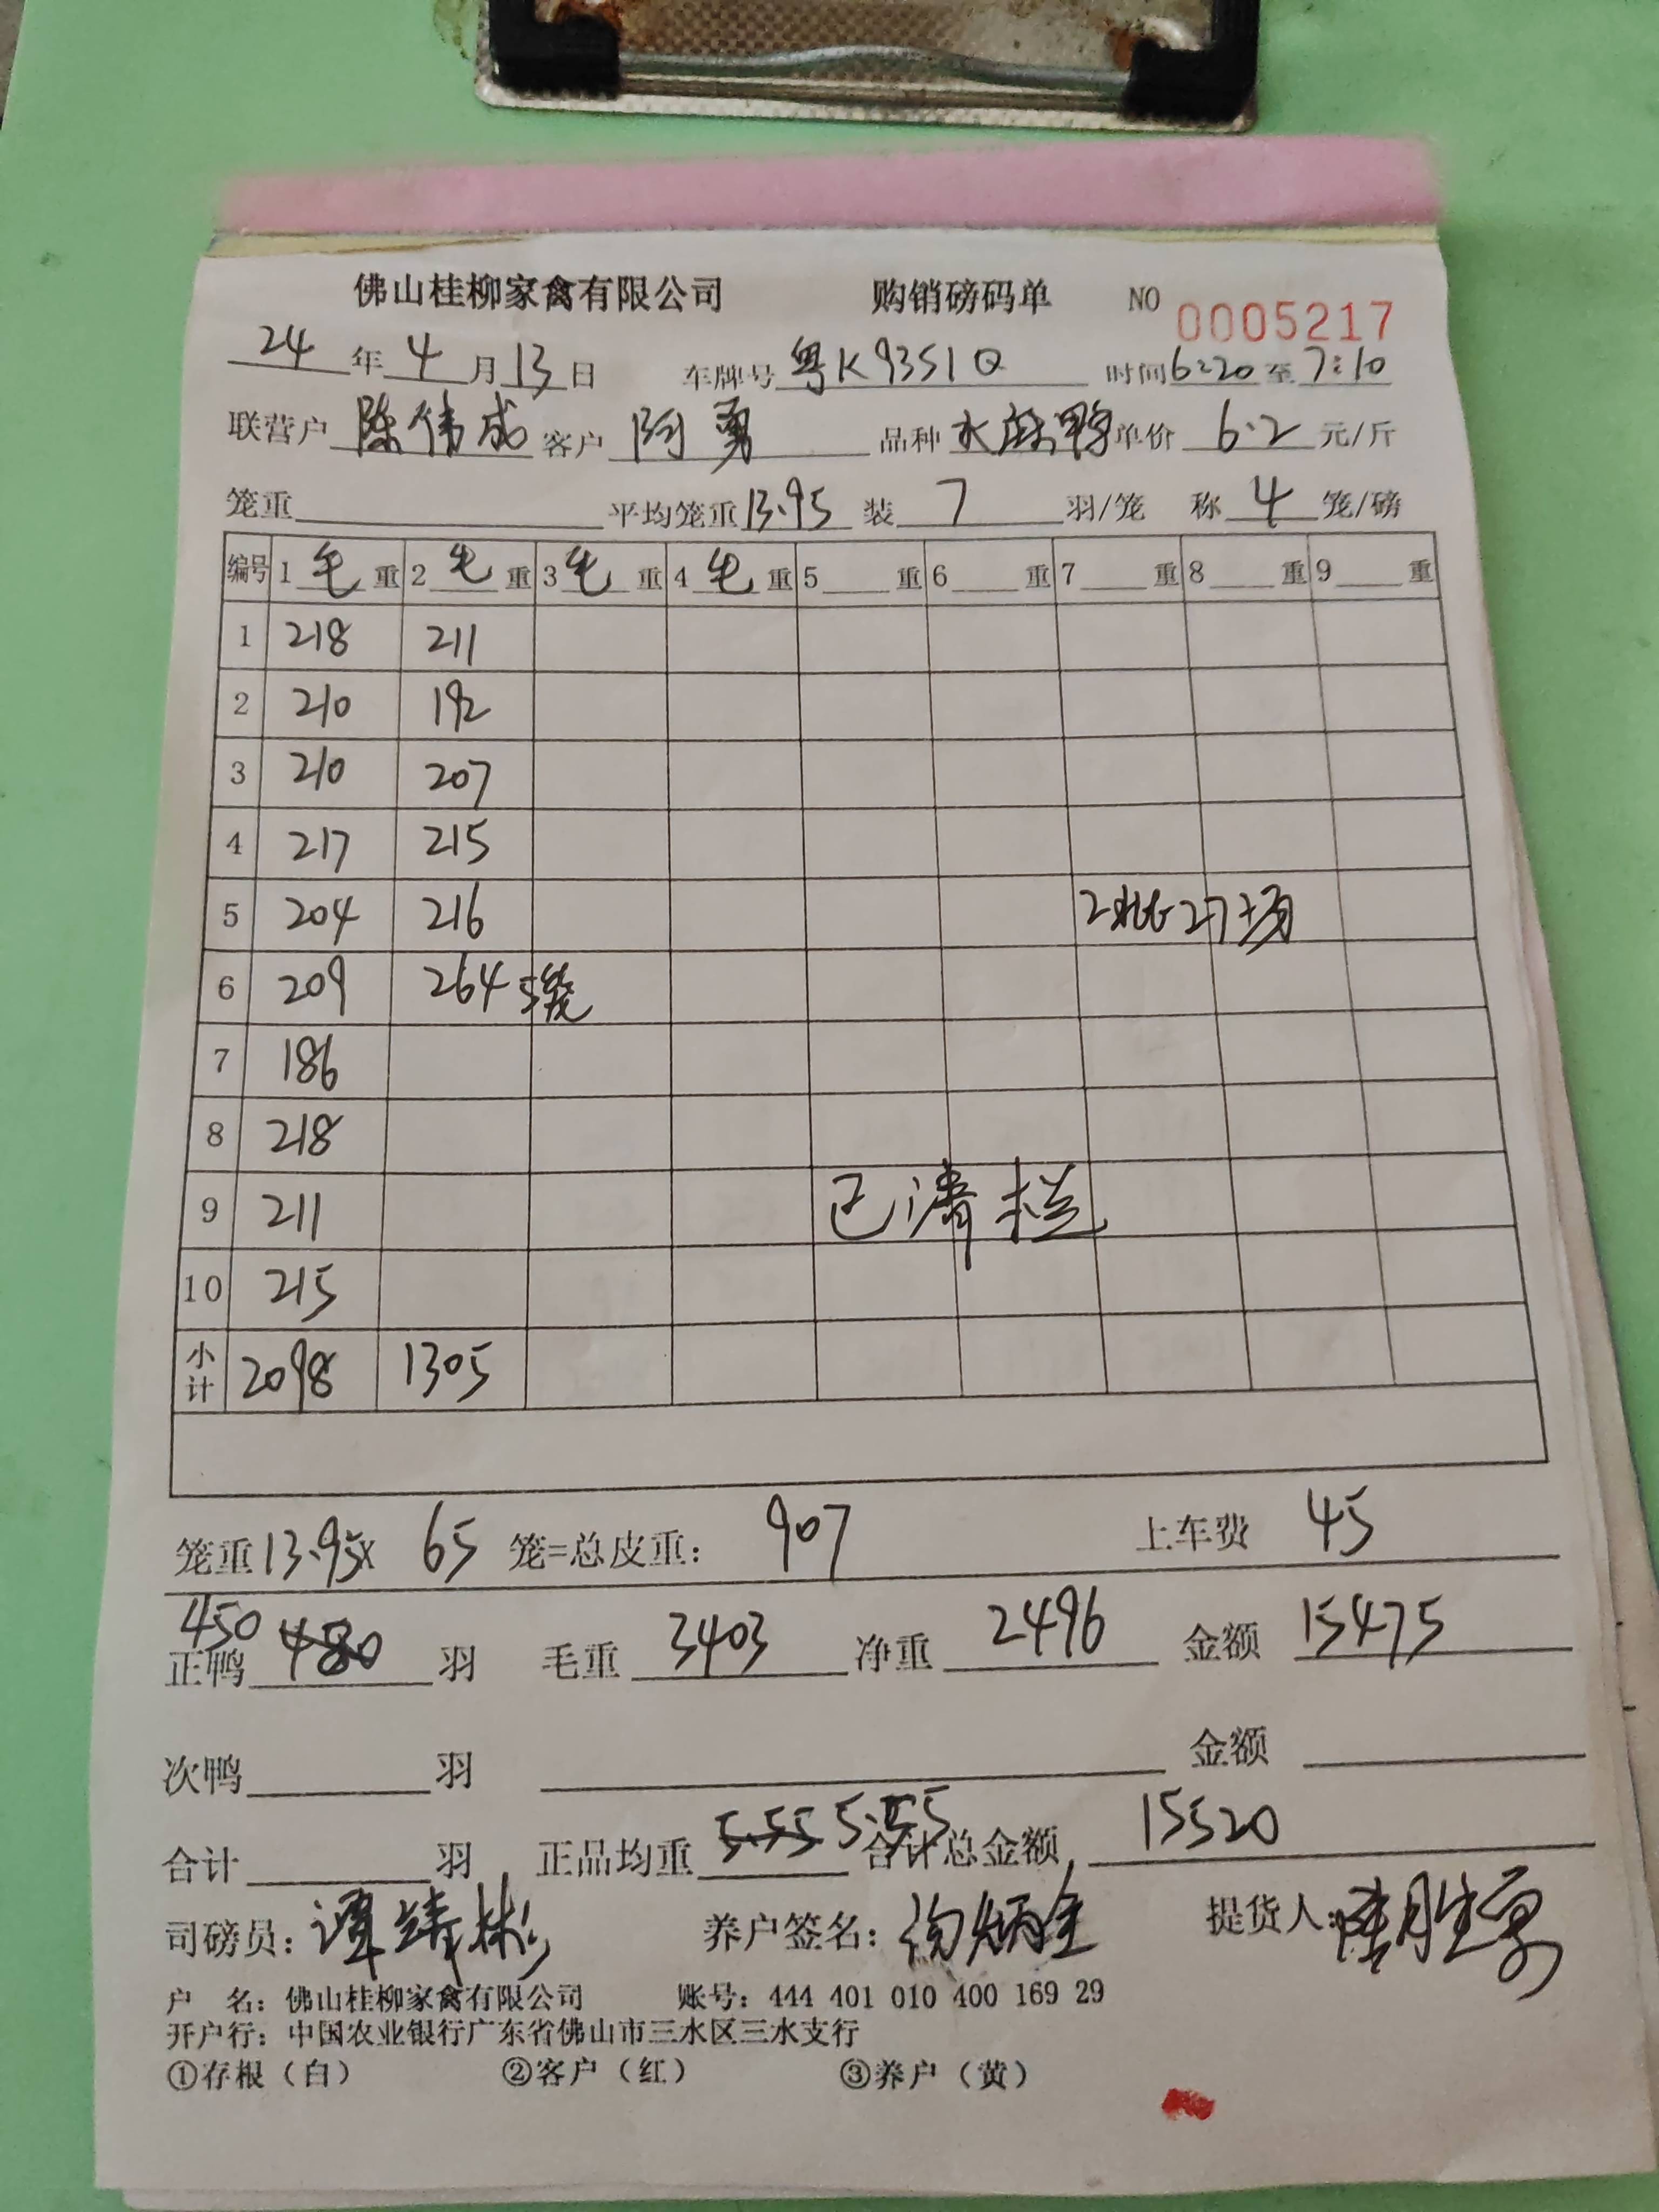 佛山桂柳家禽有限公司 购销磅码单 NO 0005217
24年4月13日 车牌号 粤K9351Q 时间6:20至7:10
联营户 陈伟成 客户 阿勇 品种 水麻鸭 单价 6.2 元/斤
笼重 平均笼重13.95 装 7 羽/笼 称 4 笼/磅
编号 1 毛 重 2 毛 重 3 毛 重 4 毛 重 5 重 6 重 7 重 8 重 9 重
1 218 211
2 210 192
3 210 207
4 217 215
5 204 216 2批27场
6 209 264 5笼
7 186
8 218
9 211 已清栏
10 215
小计 2098 1305
笼重13.95X 65 笼=总皮重: 907 上车费 45
450
正鸭 480 羽 毛重 3403 净重 2496 金额 15475
次鸭 羽 金额
合计 羽 正品均重 5.55 5.55 合计总金额 15520
司磅员: 谭靖彬 养户签名: 提货人:
户 名: 佛山桂柳家禽有限公司 账号: 444 401 010 400 169 29
开户行: 中国农业银行广东省佛山市三水区三水支行
①存根(白) ②客户(红) ③养户(黄)